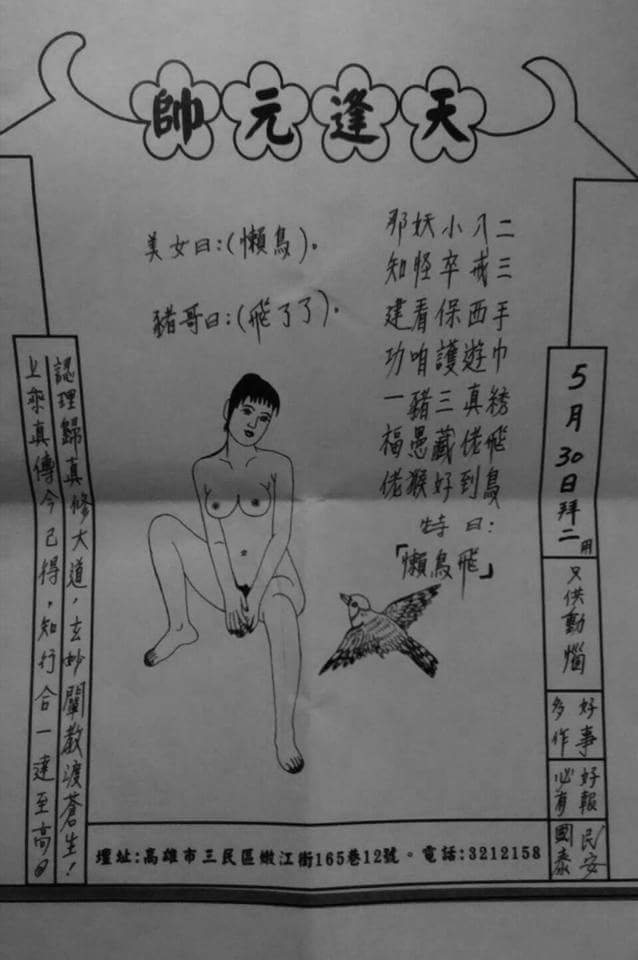 天逢元帥
5月30日拜二用
只供動惱
好事
多作
好報
必有
民安
國泰
二三手巾綉飛鳥
八戒西遊真佬到
小卒保護三藏好
妖怪看咱豬愚猴
那知建功一福佬
特曰:
「懶鳥飛」
美女曰:(懶鳥)。
豬哥曰:(飛了了)。
認理歸真修大道,玄妙闡教渡蒼生!
上乘真傳今已得,知行合一達至高。
壇址:高雄市三民區嫩江街165巷12號。電話:3212158